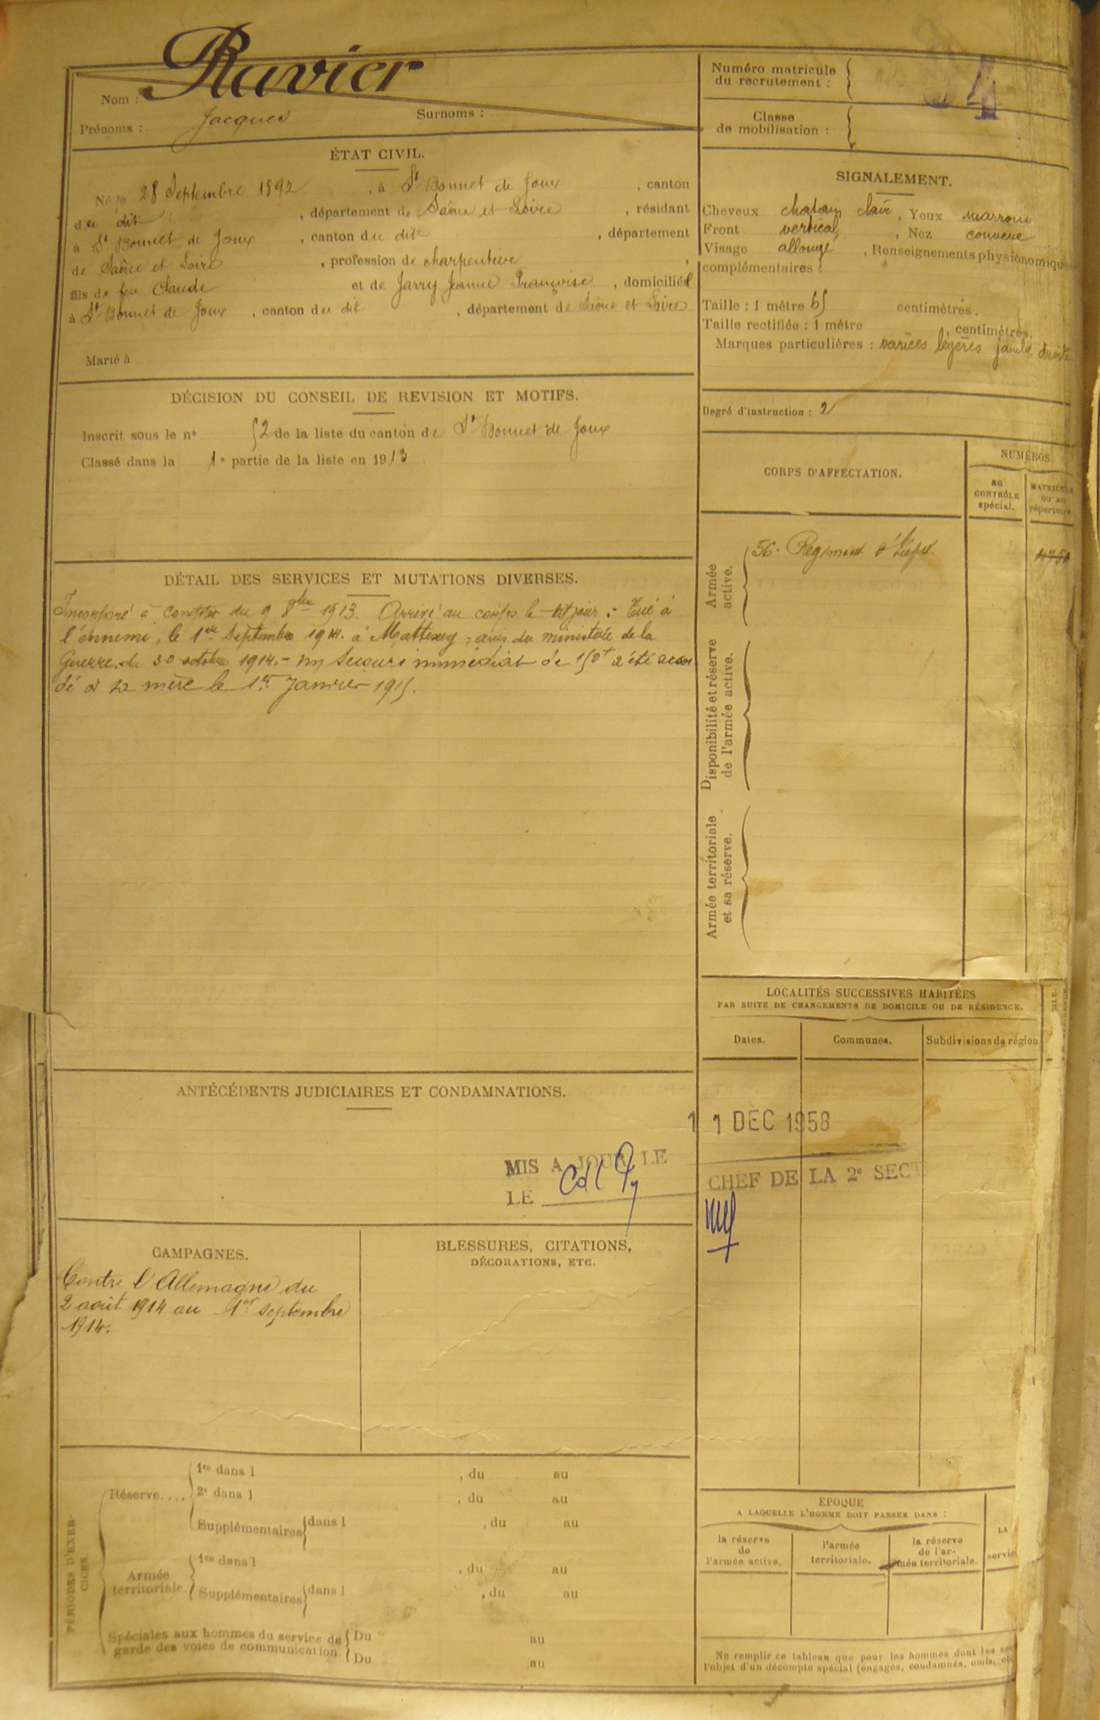 Ravier
Nom :
Prénoms : Jacques Surnoms :
ÉTAT CIVIL.
Né le 28 Septembre 1892, à St Bonnet de Joux, canton
du dit, département de Saône et Loire, résidant
à St Bonnet de Joux, canton du dit, département
de Saône et Loire, profession de charpentier
fils de feu Claude et de Jarry Jeanne Françoise, domicilié
à St Bonnet de Joux, canton du dit, département de Saône et Loire
Marié à
DÉCISION DU CONSEIL DE REVISION ET MOTIFS.
Inscrit sous le n° 52 de la liste du canton de St Bonnet de Joux
Classé dans la 1e partie de la liste en 1913
DÉTAIL DES SERVICES ET MUTATIONS DIVERSES.
Incorporé à compter du 9 8bre 1913. Arrivé au corps le dit jour. Tué à
l'ennemi, le 1er Septembre 1914. à Mattexey, avis du ministère de la
Guerre, du 30 octobre 1914. - un Secours immédiat de 150f a été accor
dé à sa mère le 1er Janvier 1915.
ANTÉCÉDENTS JUDICIAIRES ET CONDAMNATIONS.
MIS A JOUR LE
LE
CAMPAGNES.
Contre l'Allemagne du
2 août 1914 au 1er septembre
1914.
BLESSURES, CITATIONS,
DÉCORATIONS, ETC.
PÉRIODES D'EXERCICES.
Réserve....
1re dans l , du au
2e dans l , du au
Supplémentaires dans l , du au
Armée
territoriale.
1re dans l , du au
Supplémentaires dans l , du au
Spéciales aux hommes du service de
garde des voies de communication.
Du au
Du au
Numéro matricule
du recrutement :
Classe
de mobilisation :
SIGNALEMENT.
Cheveux chatain clair, Yeux marrons
Front vertical, Nez convexe
Visage allongé, Renseignements physionomiqu
complémentaires :
Taille : 1 mètre 65 centimètres.
Taille rectifiée : 1 mètre , centimètres.
Marques particulières : varices légères jambe droite
Degré d'instruction : 2
CORPS D'AFFECTATION.
NUMÉROS
AU
CONTRÔLE
spécial.
MATRICULE
OU AU
répertoire
Armée
active.
56e Régiment d'Infie
Disponibilité et réserve
de l'armée active.
Armée territoriale
et sa réserve.
LOCALITÉS SUCCESSIVES HABITÉES
PAR SUITE DE CHANGEMENTS DE DOMICILE OU DE RÉSIDENCE.
Dates. Communes. Subdivisions de région
11 DEC 1958
CHEF DE LA 2e SECT
EPOQUE
A LAQUELLE L'HOMME DOIT PASSER DANS :
la réserve
de
l'armée active.
l'armée
territoriale.
la réserve
de l'ar-
mée territoriale.
LA
servic
Ne remplir ce tableau que pour les hommes dont les
l'objet d'un décompte spécial (engagés, condamnés, omis,